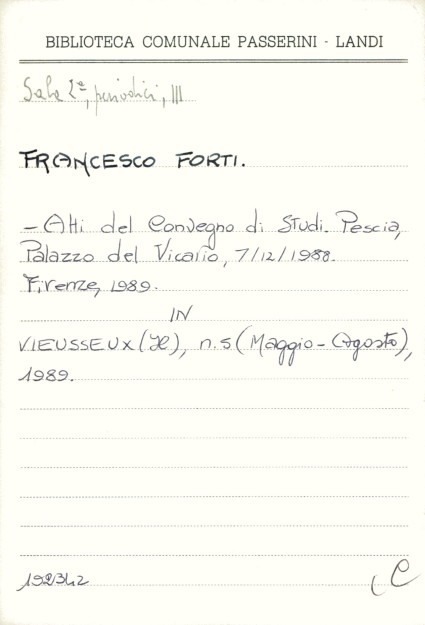 BIBLIOTECA COMUNALE PASSERINI - LANDI
Sala 2ª, periodici, III
FRANCESCO FORTI.
- Atti del Convegno di Studi. Pescia,
Palazzo del Vicario, 7/12/1988.
Firenze, 1989.
IN
VIEUSSEUX (Il), n.5 (Maggio - Agosto),
1989.
192342
C